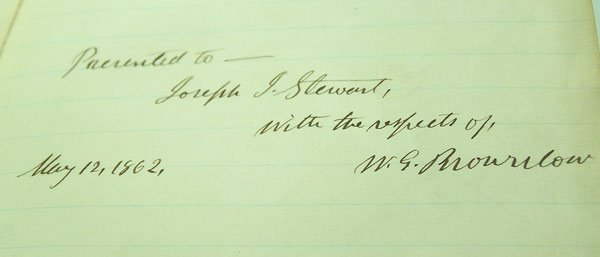 Presented to —
Joseph J. Stewart,
With the respects of,
W. G. Brownlow
May 12, 1862,